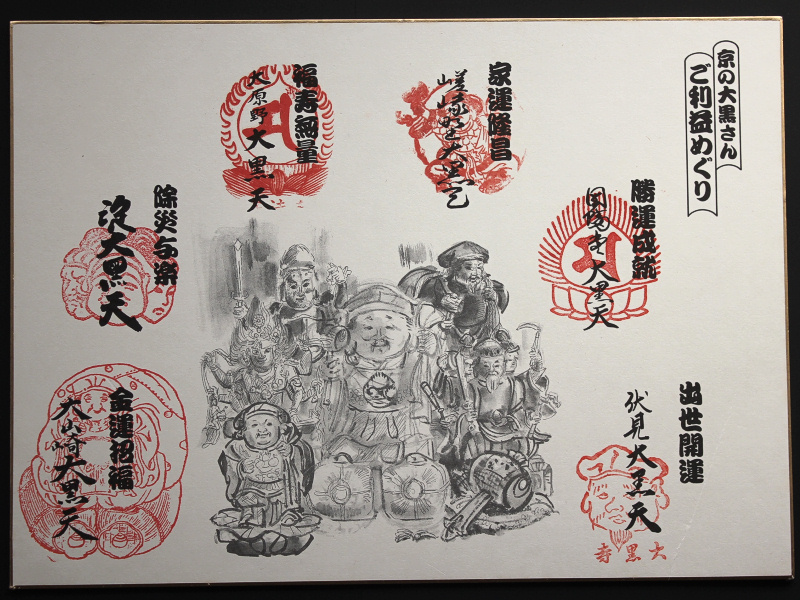 京の大黒さん
ご利益めぐり
出世開運
伏見大黒天
大黒寺
勝運成就
大黒天
家運隆昌
嵯峨野大黒天
福寿無量
大原野
大黒天
除災与楽
淀大黒天
金運招福
大山崎大黒天